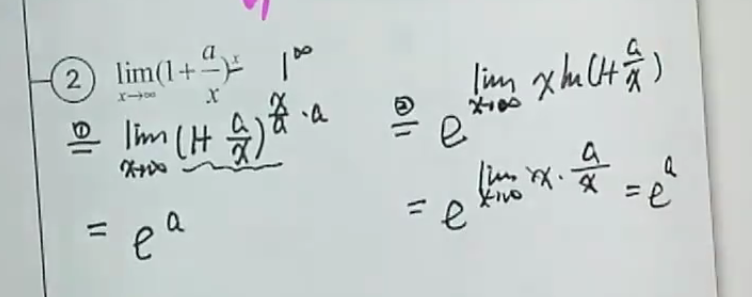 ② lim_{x→∞}(1+a/x)^x = 1^∞
①= lim_{x→∞}(1+a/x)^{x/a·a}
= e^a
②= e^{lim_{x→∞} x ln(1+a/x)}
= e^{lim_{x→∞} x·a/x} = e^a